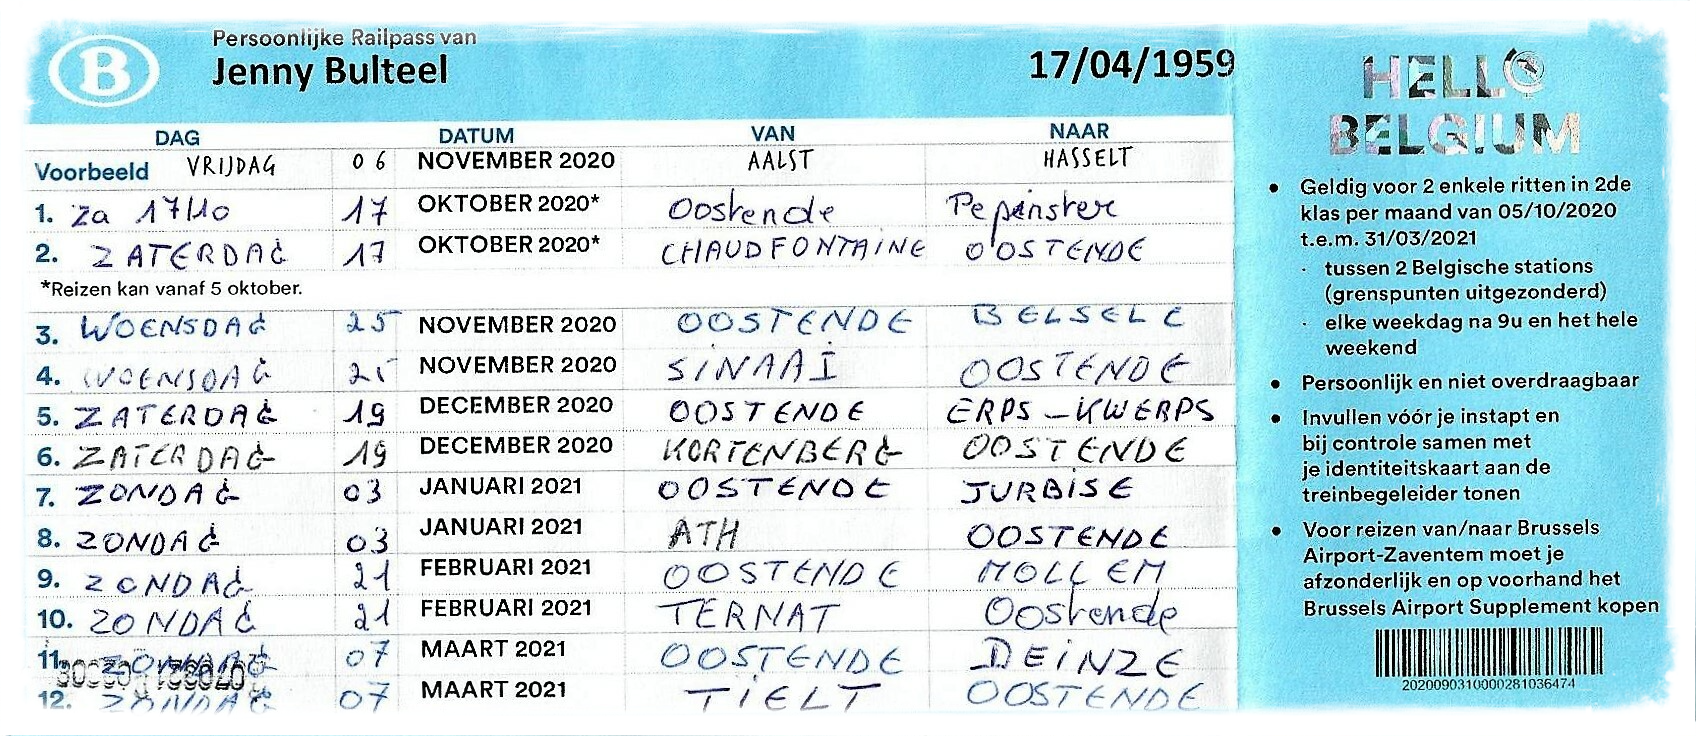 B
Persoonlijke Railpass van
Jenny Bulteel
17/04/1959
DAG DATUM VAN NAAR
Voorbeeld VRIJDAG 06 NOVEMBER 2020 AALST HASSELT
1. Za 17/10 17 OKTOBER 2020* Oostende Pepinster
2. ZATERDAG 17 OKTOBER 2020* CHAUDFONTAINE OOSTENDE
*Reizen kan vanaf 5 oktober.
3. WOENSDAG 25 NOVEMBER 2020 OOSTENDE BELSELE
4. WOENSDAG 25 NOVEMBER 2020 SINAAI OOSTENDE
5. ZATERDAG 19 DECEMBER 2020 OOSTENDE ERPS-KWERPS
6. ZATERDAG 19 DECEMBER 2020 KORTENBERG OOSTENDE
7. ZONDAG 03 JANUARI 2021 OOSTENDE JURBISE
8. ZONDAG 03 JANUARI 2021 ATH OOSTENDE
9. ZONDAG 21 FEBRUARI 2021 OOSTENDE MOLLEM
10. ZONDAG 21 FEBRUARI 2021 TERNAT Oostende
11. ZONDAG 07 MAART 2021 OOSTENDE DEINZE
12. ZONDAG 07 MAART 2021 TIELT OOSTENDE
HELLO
BELGIUM
• Geldig voor 2 enkele ritten in 2de
klas per maand van 05/10/2020
t.e.m. 31/03/2021
· tussen 2 Belgische stations
(grenspunten uitgezonderd)
· elke weekdag na 9u en het hele
weekend
• Persoonlijk en niet overdraagbaar
• Invullen vóór je instapt en
bij controle samen met
je identiteitskaart aan de
treinbegeleider tonen
• Voor reizen van/naar Brussels
Airport-Zaventem moet je
afzonderlijk en op voorhand het
Brussels Airport Supplement kopen
2020090310000281036474